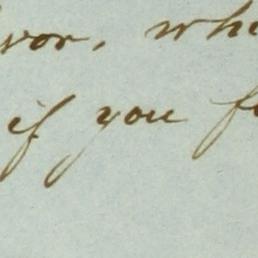 vor, wh
if you f